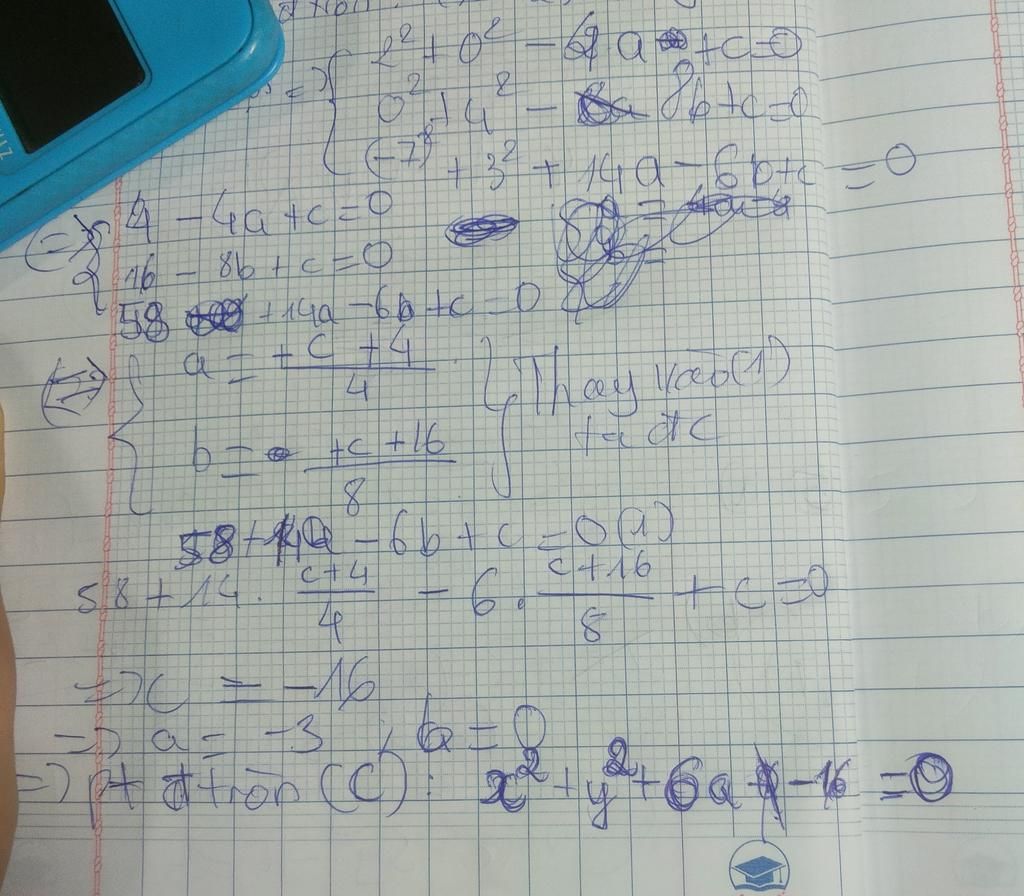 2² + 0² - 4a + c = 0
0² + 4² - 8b + c = 0
(-7)² + 3² + 14a - 6b + c = 0
4 - 4a + c = 0
16 - 8b + c = 0
58 + 14a - 6b + c = 0
a = +c + 4 / 4
b = +c + 16 / 8
Thay vào (1)
ta đc
58 + 14a - 6b + c = 0 (1)
58 + 14 . c + 4 / 4 - 6 . c + 16 / 8 + c = 0
=> c = -16
=> a = -3 ; b = 0
=> pt đtròn (C) : x² + y² + 6a - 16 = 0